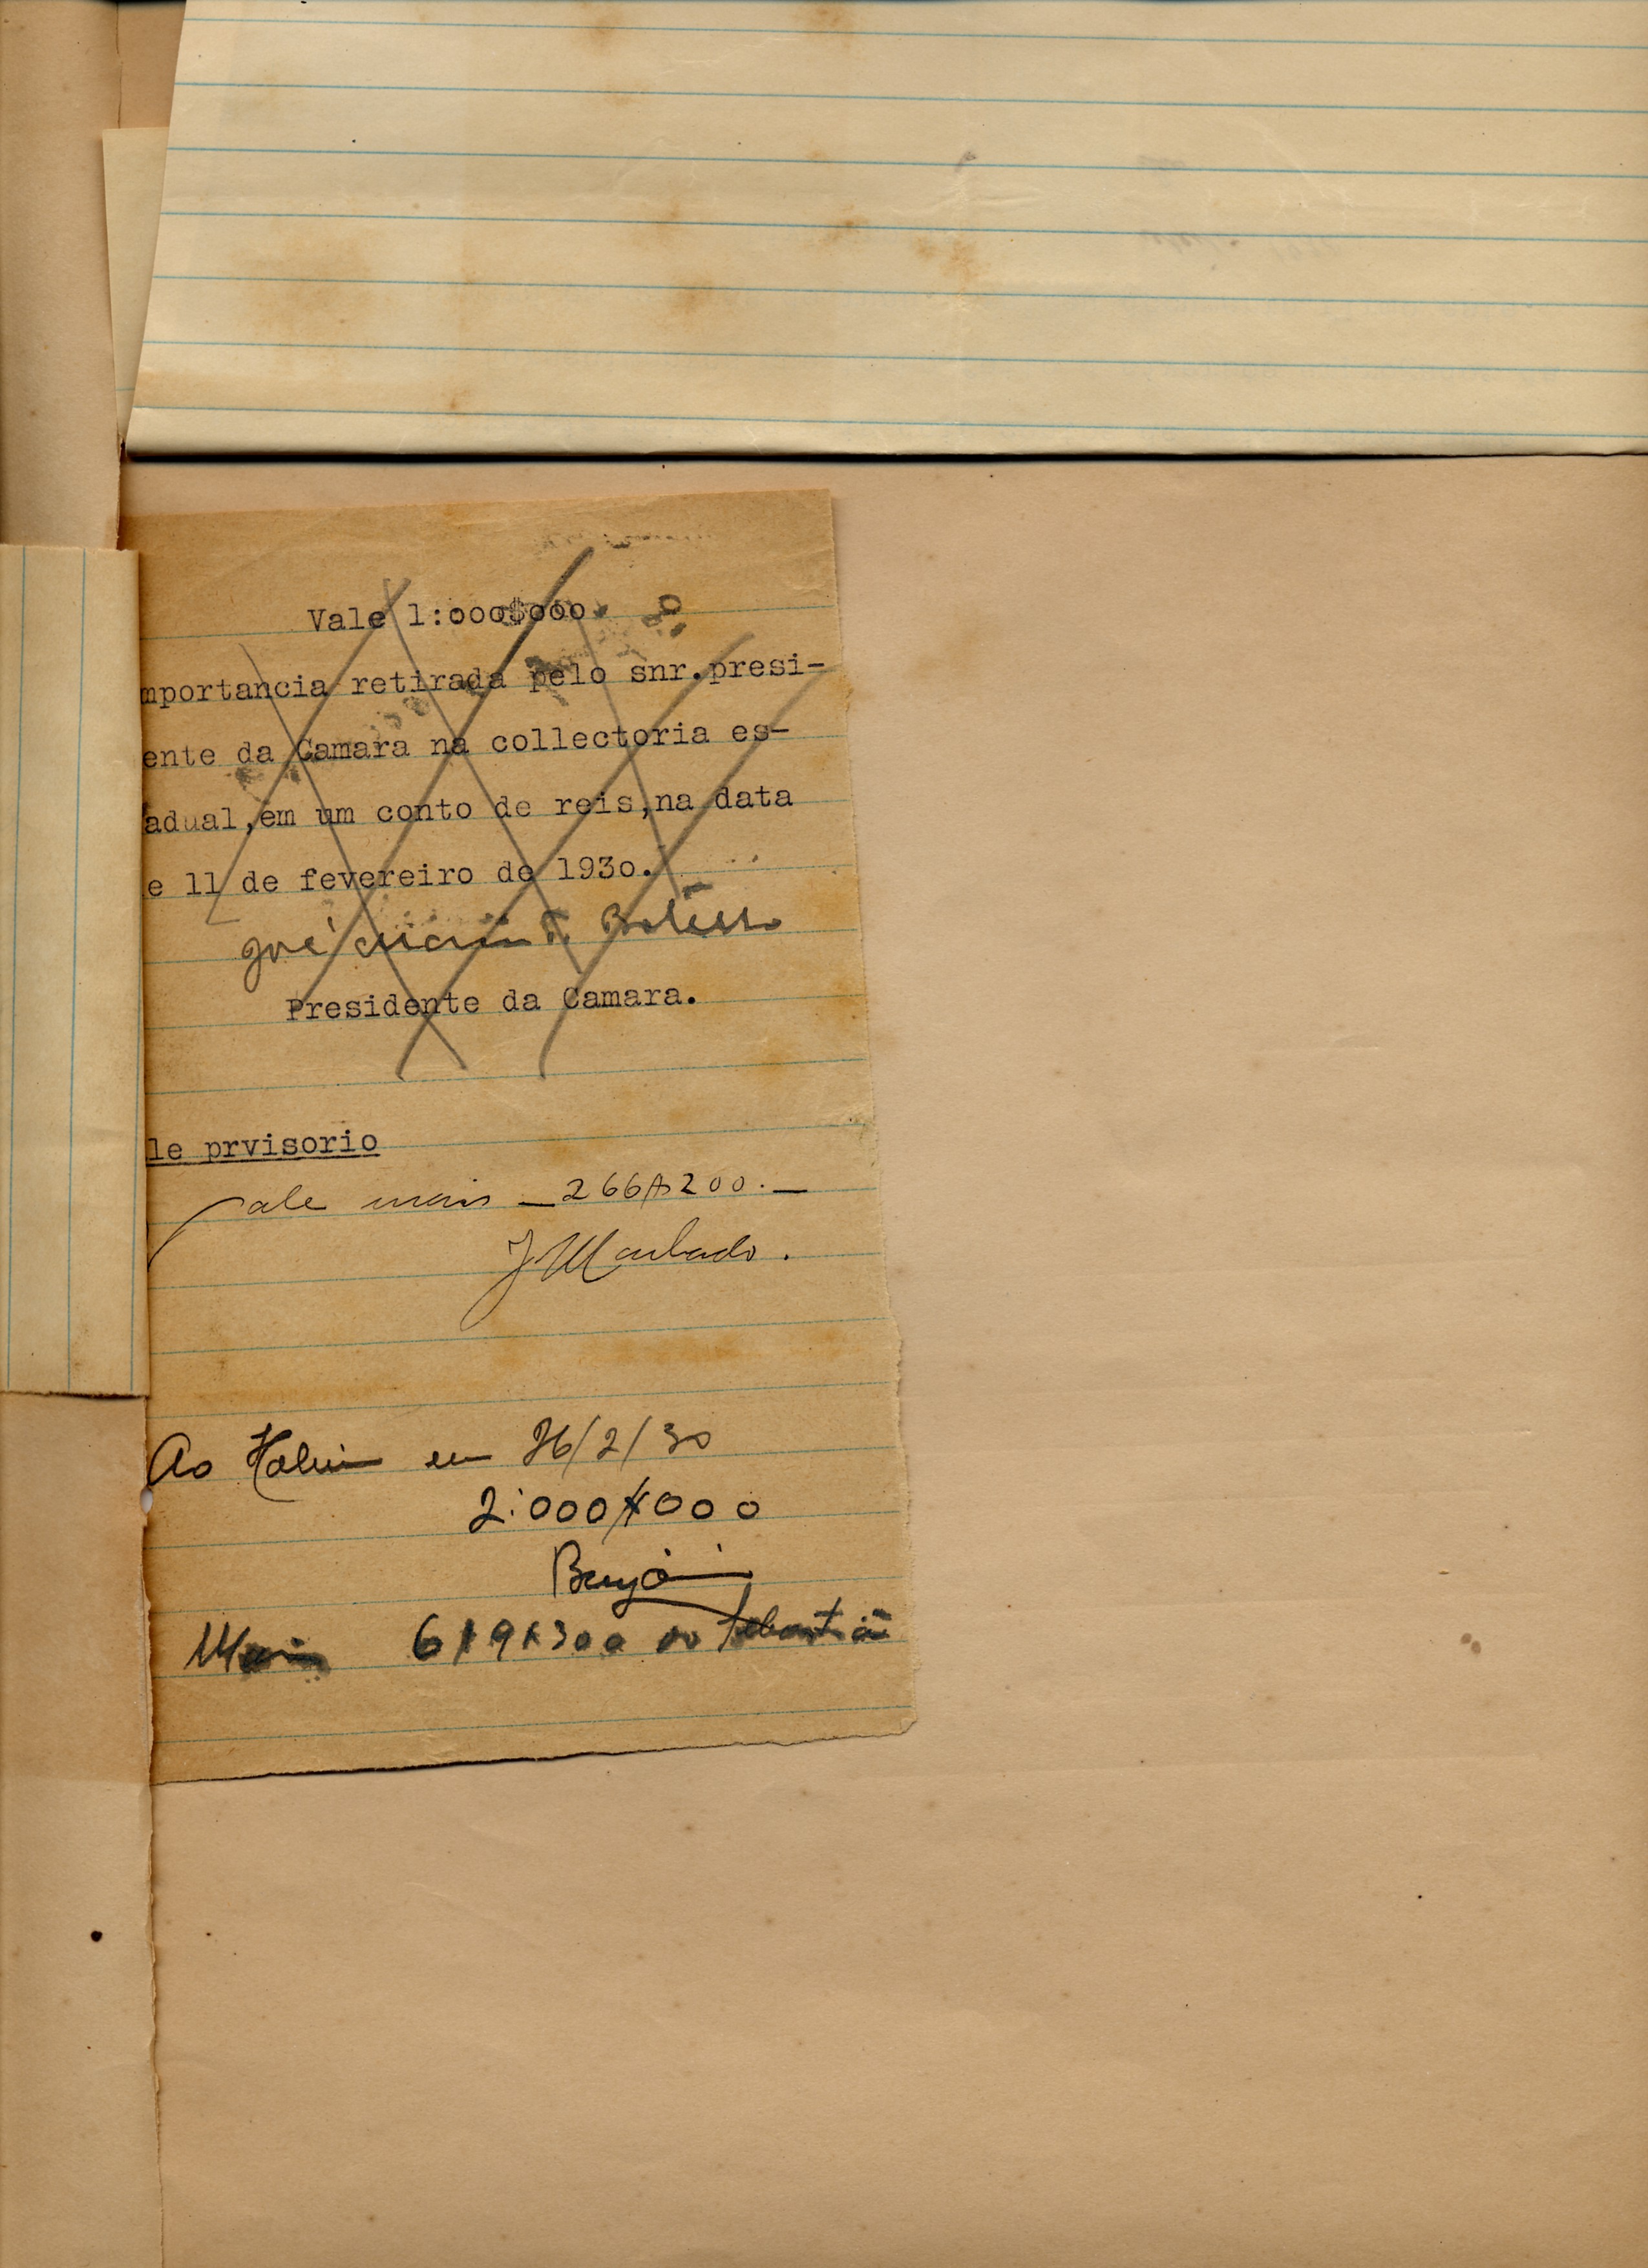 Vale 1:ooo$ooo.
mportancia retirada pelo snr.presi-
ente da Camara na collectoria es-
adual,em um conto de reis,na data
e 11 de fevereiro de 193o.
José
Presidente da Camara.
le prvisorio
Vale mais — 266$200. —
J Machado.
Ao em 26/2/30
2:000$000
Benja
Mais 619$300 ao Sebastião